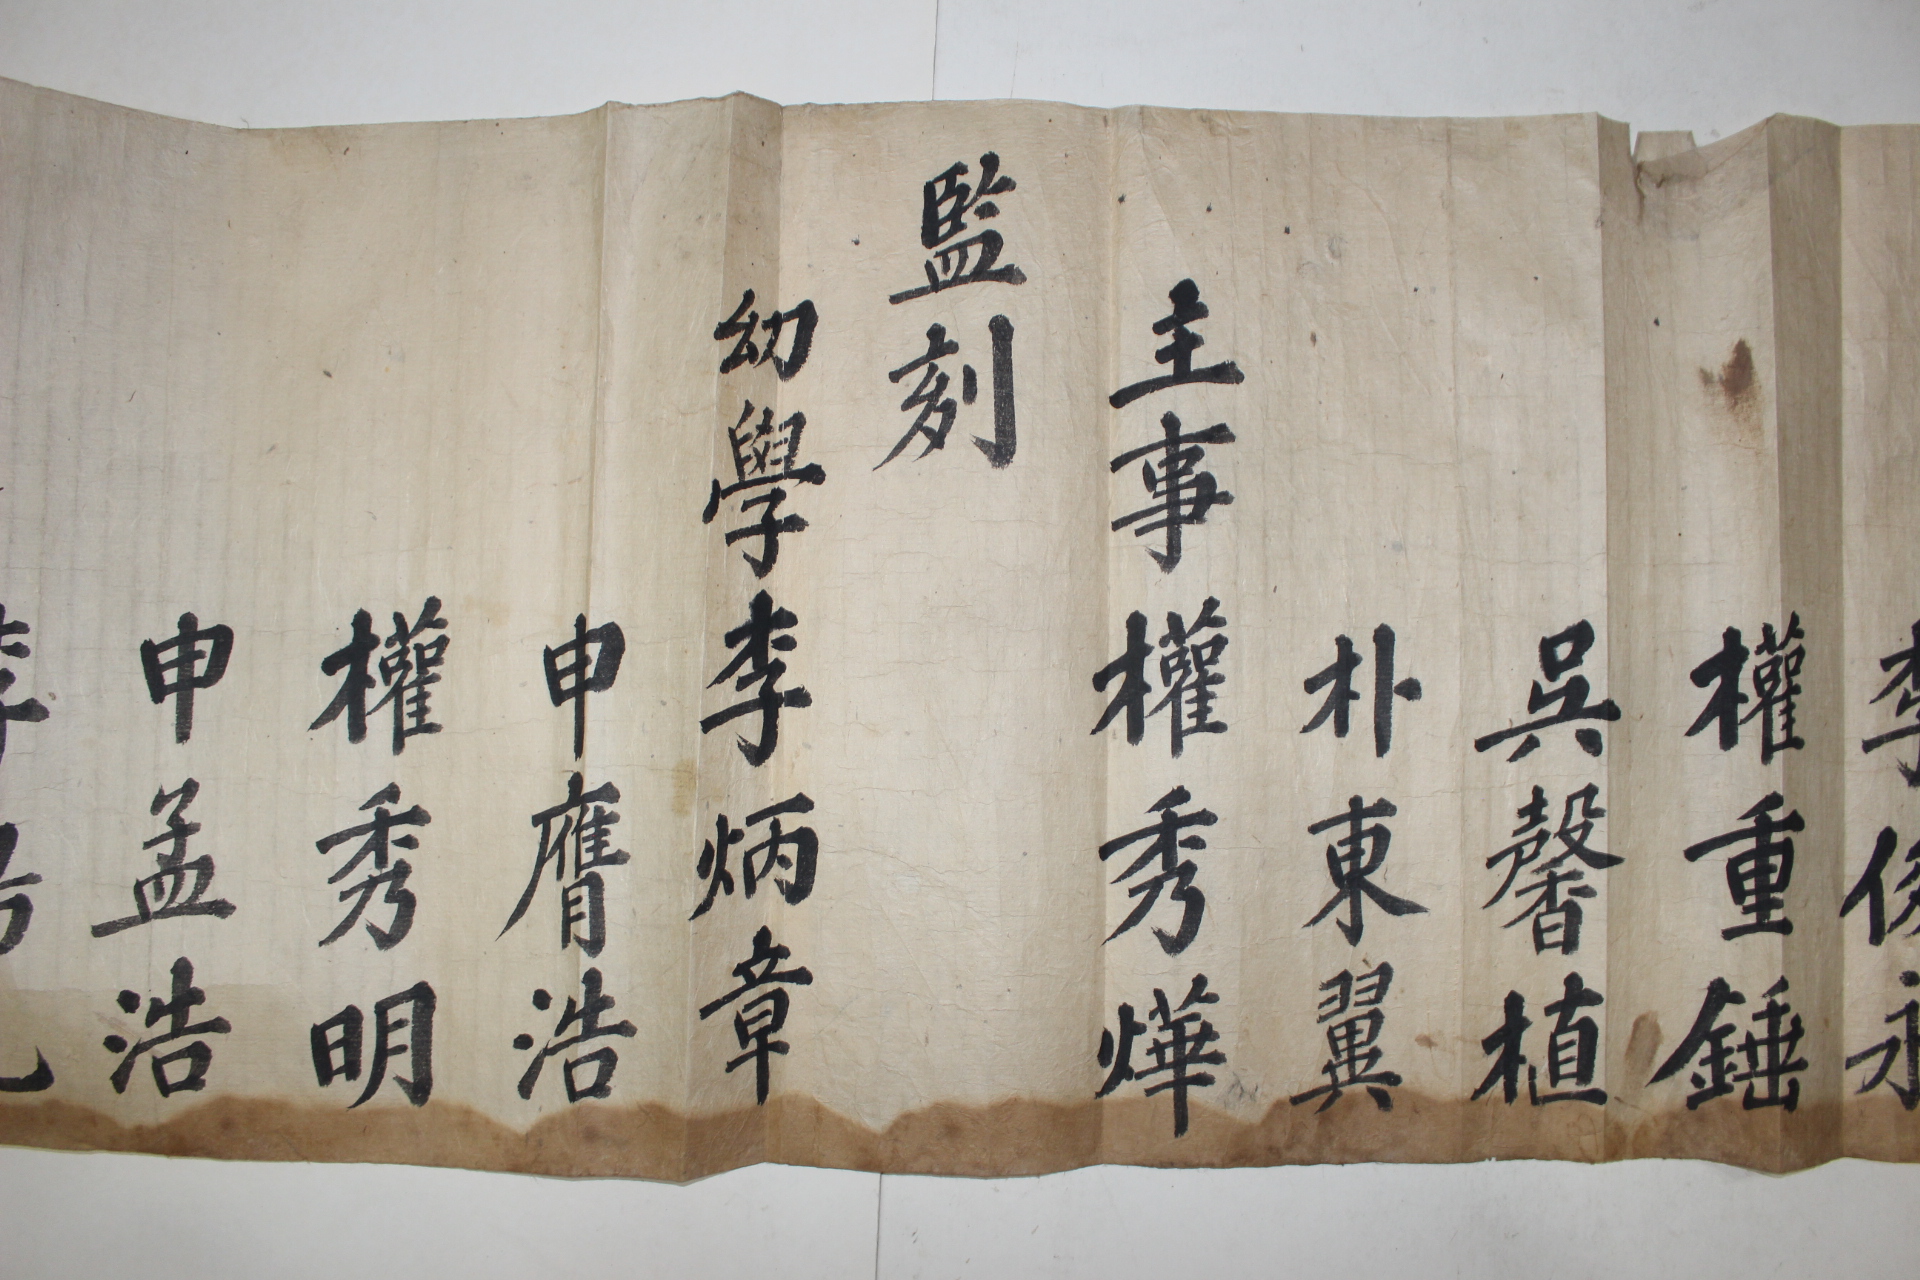 李俊永
權重錘
吳馨植
朴東翼
主事 權秀燁
監刻
幼學 李炳章
申膺浩
權秀明
申孟浩
李